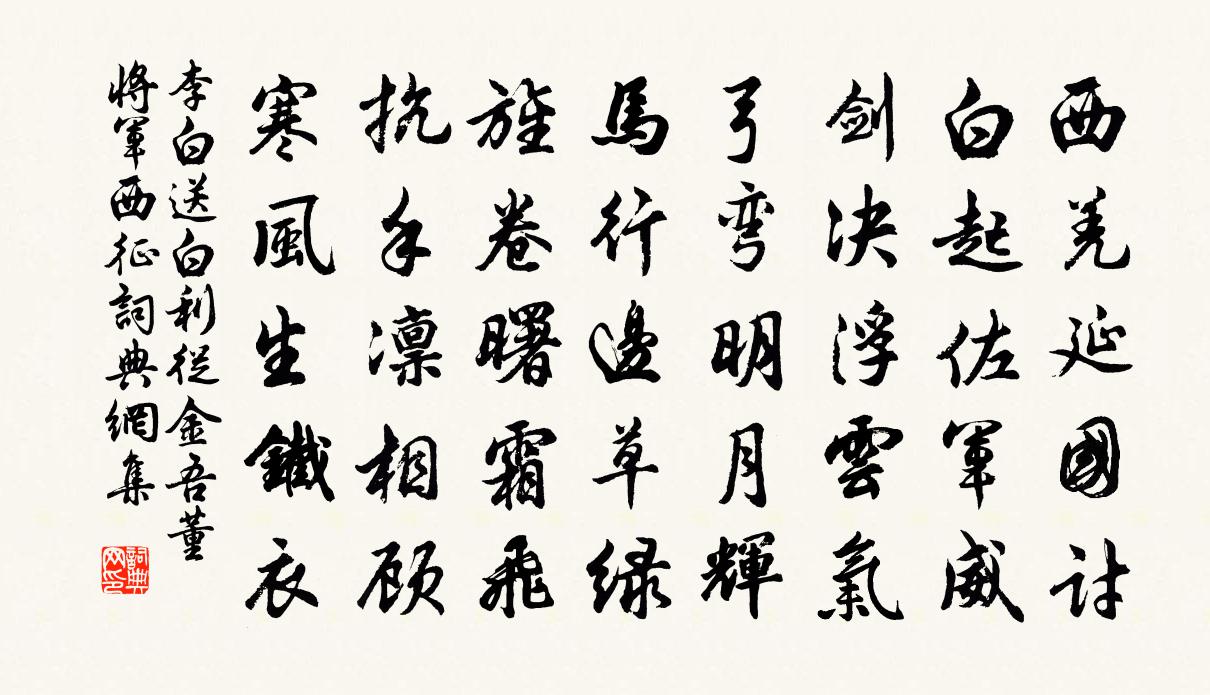 西羌延國討
白起佐軍威
劍決浮雲氣
弓彎明月輝
馬行邊草綠
旌卷曙霜飛
抗手凜相顧
寒風生鐵衣
李白送白利從金吾董
將軍西征詞典網集
詞典
网印